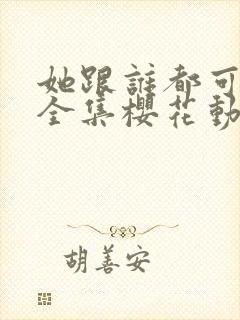 她跟誰都可
全集櫻花動
胡善安